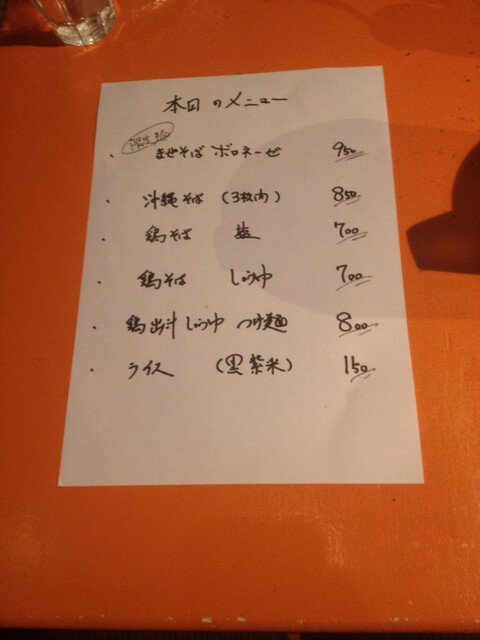 本日のメニュー
・ まぜそば ボロネーゼ 950
・ 沖縄そば (3枚肉) 850
・ 鶏そば 塩 700
・ 鶏そば しょうゆ 700
・ 鶏出汁しょうゆ つけ麺 800
・ ライス (黒紫米) 150